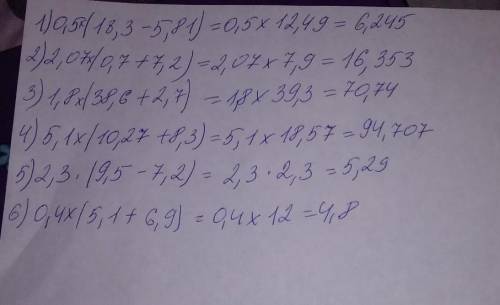 1) 0,5×(18,3-5,81)=0,5×12,49=6,245
2) 2,07×(0,7+7,2)=2,07×7,9=16,353
3) 1,8×(38,6+2,7)=1,8×39,3=70,74
4) 5,1×(10,27+8,3)=5,1×18,57=94,707
5) 2,3·(9,5-7,2)=2,3·2,3=5,29
6) 0,4×(5,1+6,9)=0,4×12=4,8